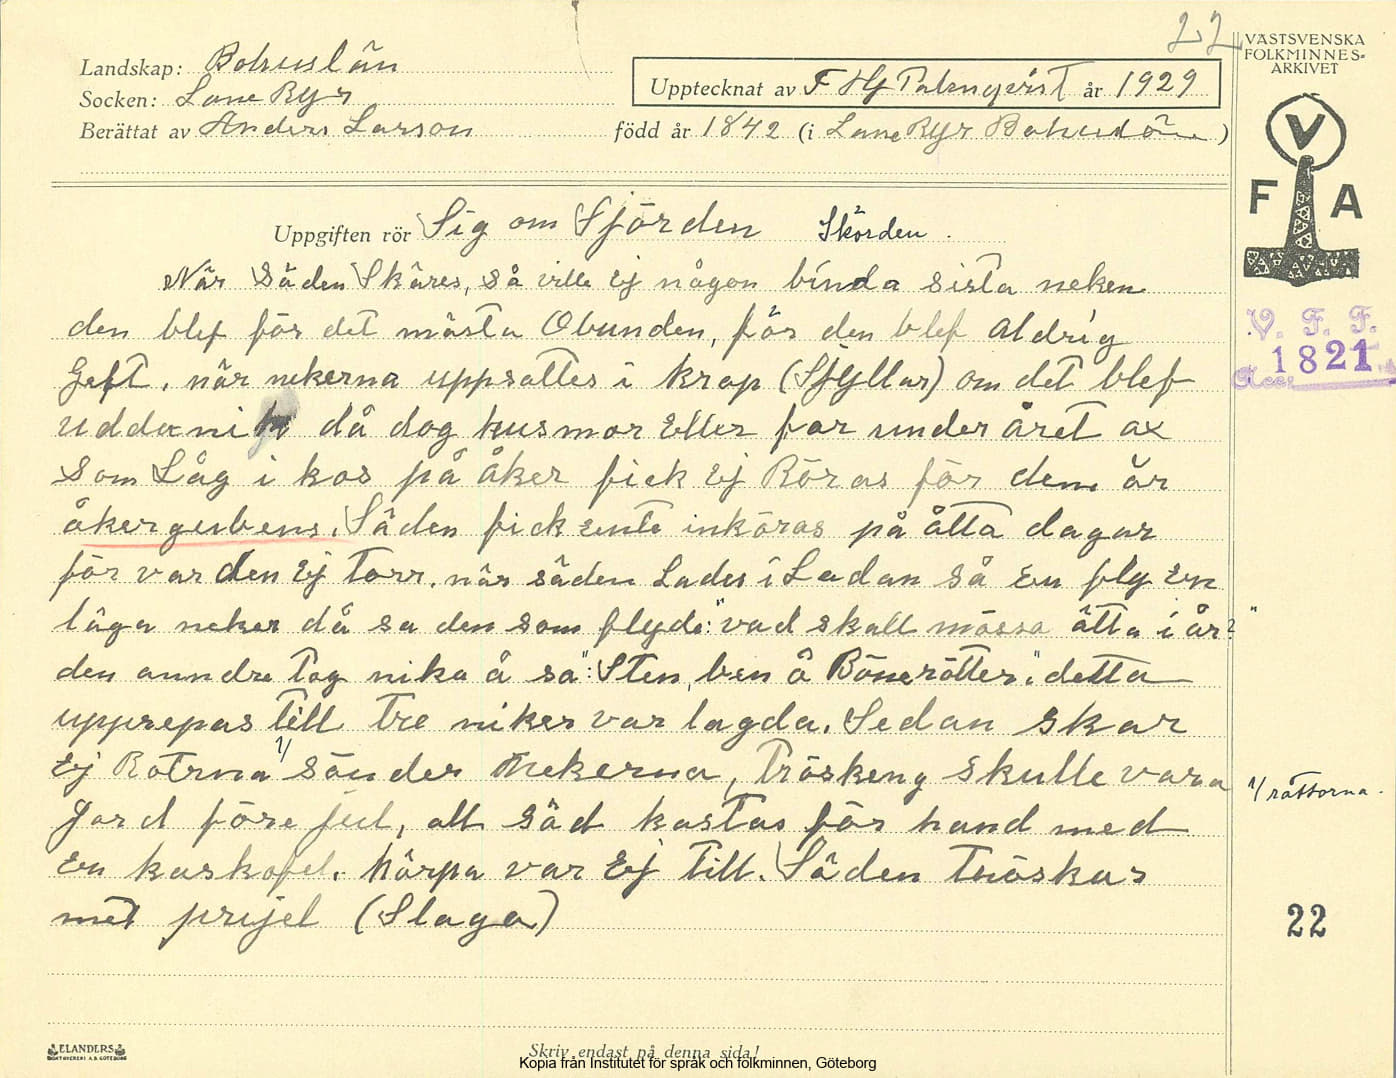 22
VÄSTSVENSKA
FOLKMINNES-
ARKIVET
Landskap: Bohuslän
Socken: Lane Ryr
Upptecknat av F Hj Palmqvist år 1929
Berättat av Anders Larson född år 1842 (i Lane Ryr Bohuslän)
V
F A
Uppgiften rör Sig om Sjörden Skörden.
När Säden Skäres, så ville Ej någon binda sista neken
den blef för det mästa Obunden, för den blef aldrig
Geft, när nekerna uppsattes i krap (Skyllar) om det blef
udda då dog husmor Eller far under året ax
Som Låg i kos på åker fick Ej Röras för dem är
åkergubens. Säden fick ente inköras på åtta dagar
för var den Ej torr. när säden Lades i Ladan så En fly En
låga neker då sa den som flyde: "vad skall mössa ätta i år?"
den anndre tog nika å sa": Sten, ben å Bönerötter." detta
upprepas till tre niker var lagda. Sedan skar
Ej Rotrna 1/ sönder Nekerna, Tröskeng skulle vara
1/ råttorna.
Gord före jul, all Säd kastas för hand med
En kaskofel. Hårpa var Ej till. Säden tröskas
met prejel (Slaga)
V. F. F.
Acc: 1821
22
ELANDERS
BOKTRYCKERI A.B. GÖTEBORG
Skriv endast på denna sida!
Kopia från Institutet för språk och folkminnen, Göteborg